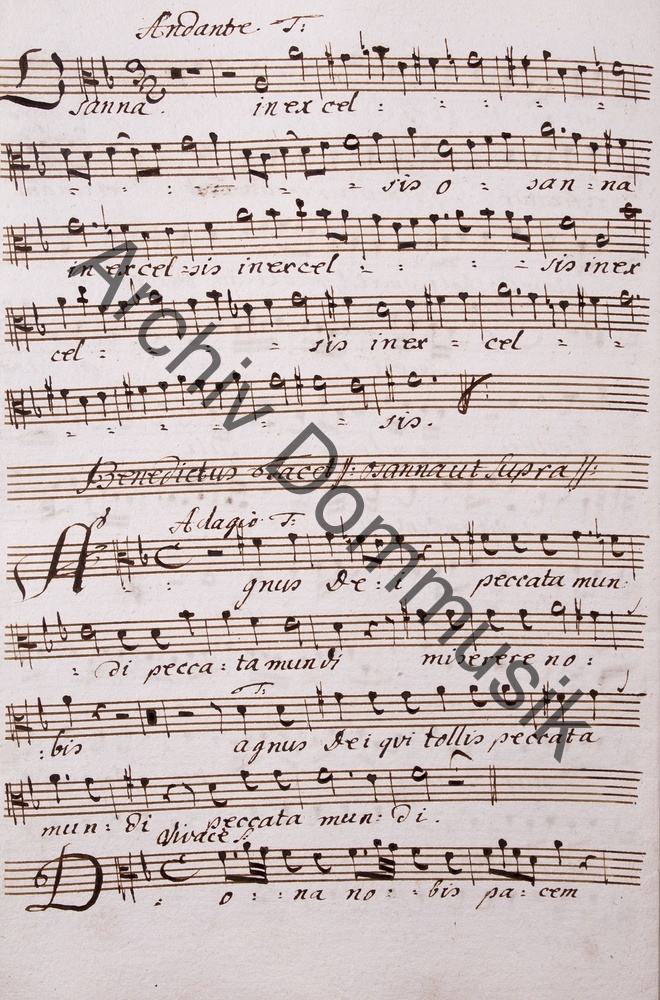 Andante. T:
Osanna. in ex cel : : : : :
: : : : : : sis o : san : na
in excel = sis in excel : : : : sis in ex
cel : : : sis in ex : cel : :
: : : : : : sis.
Benedictus tacet //: osanna ut supra //:
Adagio T:
A : : gnus De : i peccata mun :
: di pecca : ta mundi miserere no :
T:
: bis agnus Dei qui tollis peccata
mun : di peccata mun : di.
Vivace T:
D : o : : na no : : bis pa : cem
Archiv Dommusik